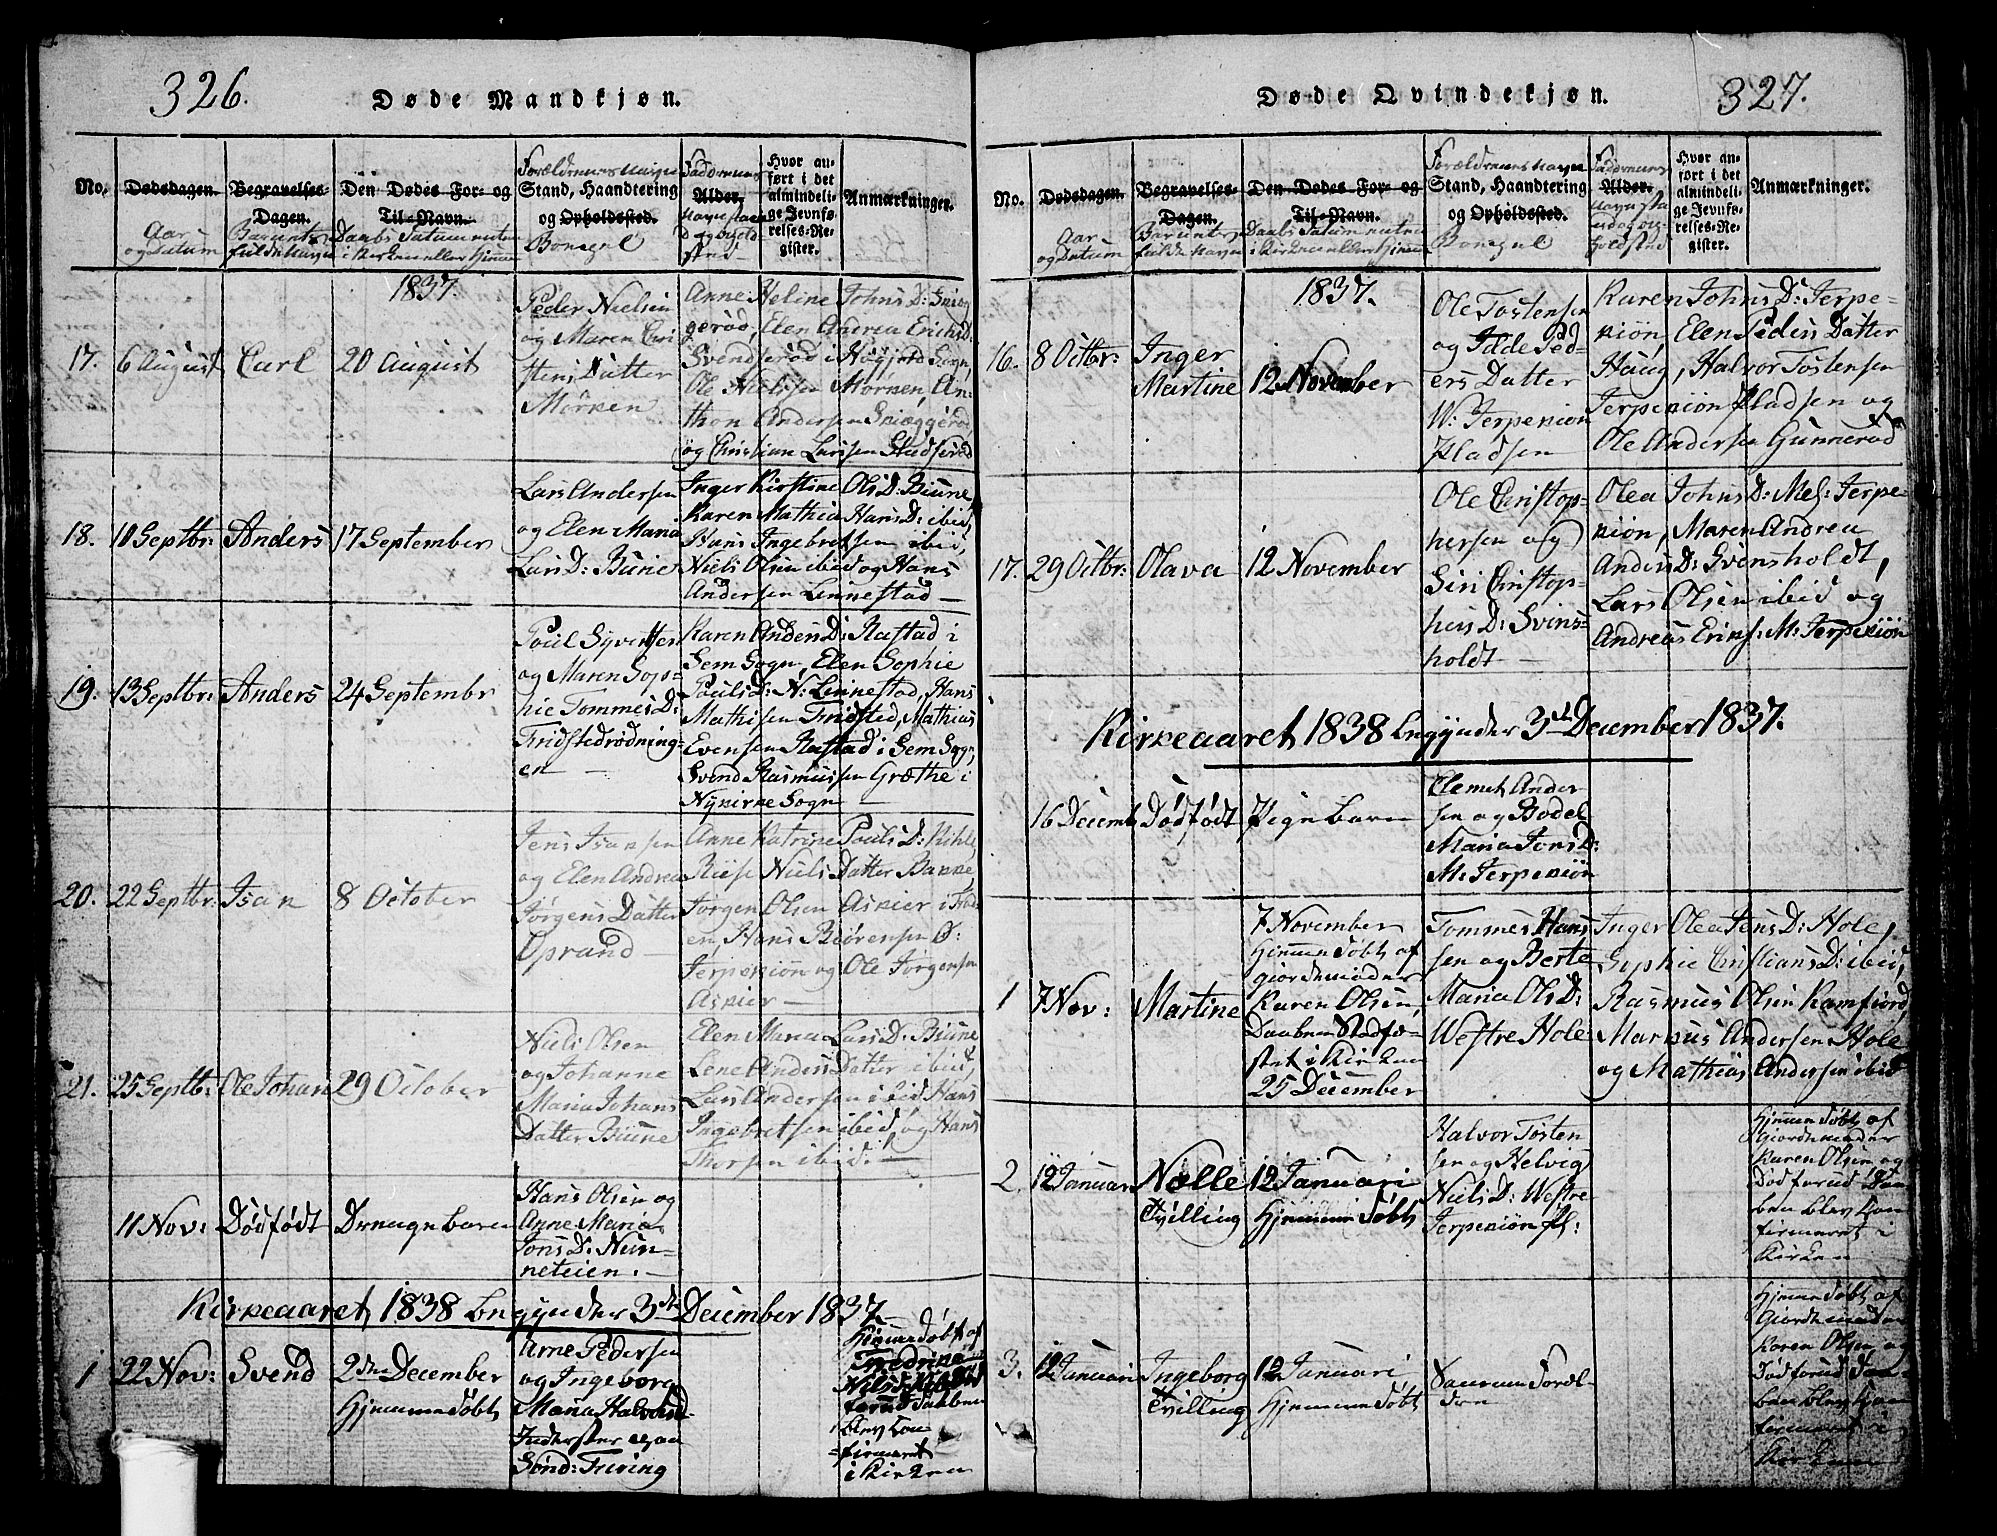 326.
Døde Mandkjøn.
No.
Dødsdagen.
Aar
og Datum
Begravelses-
Dagen.
Barnets
fulde Navn
Den Dødes For- og
Til-Navn.
Daabs Datum enten
i Kirken eller Hjemme
Forældrenes Navne
Stand, Haandtering
og Opholdssted.
Bopæl
Faddernes
Alder.
Navn
Hvor an-
ført i det
almindeli-
ge Jevnfø-
relses-Re-
gister.
Anmærkninger.
1837.
17.
6 August
Carl
20 August
Peder Nielsen
og Maren Cri
stens Datter
Mørken
Anne Heline Johns D:
gerød, Elen Andrea Erichs D:
Svendserød i Høyjord Sogn,
Ole Nielsen Mørken, An-
thon Andersen Sniæggerød
og Christian Larsen
18.
10 Septbr:
Anders
17 September
Lars Andersen
og Elen Maria
Lars D: Biune
Inger Kirstine Ols D: Biune
Karen Mathia Hans D: ibid,
Hans Ingebretsen ibid,
Niels Olsen ibid og Hans
Andersen Linnestad —
19.
13 Septbr:
Anders
24 Septembr
Poul Syvertsen
og Maren Sop-
hie Tommes D:
Fridstedrødning-
en —
Karen Anders D: Rastad i
Sem Sogn, Elen Sophie
Pouls D: N: Linnestad, Hans
Mathisen Fridsted, Mathias
Evensen Rastad i Sem Sogn,
Svend Rasmussen Græthe i
Nykirke Sogn —
20.
22 Septbr:
Isak
8 October
Jens Isaksen
og Elen Andrea
Jørgens Datter
Oprand —
Anne Katrine Pouls D:
Riise Niels Datter Bakke,
Jørgen Olsen Askier i
en, Hans Biørensen Ø:
Jerpekiøn og Ole Jørgensen
Askier —
21.
25 Septbr:
Ole Johan
29 October
Niels Olsen
og Johanne
Maria Johans
Datter Biune
Elen Maria Lars D: Biune
Lene Anders Datter ibid,
Lars Andersen ibid Hans
Ingebretsen ibid, og Hans
Thorsen ibid. —
11 Nov:
Dødfødt
Drenge barn
Hans Olsen og
Anne Maria
Jons D: Nun-
neteien. —
Kirkeaaret 1838 begynder 3de December 1837.
1
22 Nov:
Svend
2den December
Hjemmedøbt
Arne Pedersen
og Ingeborg
Maria Halvors D
Inderster
Sønd: Freving
Hjemmedøbt af
Fredrine
Niels
Daaben
blev kon
firmeret
i Kirken
327.
Døde Qvindekjøn.
No.
Dødsdagen.
Aar
og Datum
Begravelses-
Dagen.
Barnets
fulde Navn
Den Dødes For- og
Til-Navn.
Daabs Datum enten
i Kirken eller Hjemme
Forældrenes Navne
Stand, Haandtering
og Opholdssted.
Bopæl
Faddernes
Alder.
Hvor an-
ført i det
almindeli-
ge Jevnfø-
relses-Re-
gister.
Anmærkninger.
1837.
16.
8 Octbr:
Inger
Martine
12 November
Ole Tostensen
og Idde Ped-
ers Datter
W: Jerpekiøn
Pladsen
Karen Johns D: Jerpe-
kiøn, Elen Peders Datter
Haug, Halvor Tostensen
Jerpekiøn Pladsen og
Ole Andersen Gunnerød
17.
29 Octbr:
Olava
12 November
Ole Christop-
hersen og
Siri Christop-
hers D: Svins-
holdt —
Olea Johns D: Mel: Jerpe-
kiøn, Maren Andrea
Anders D: Svensholdt,
Lars Olsen ibid og
Andreas Eriks: M: Jerpekiøn
Kirkeaaret 1838 begynder 3de December 1837.
16 Decemb
Dødfødt
Pige Barn
Clemet Ander
sen og Bodel
Maria Jons D:
M: Jerpekiøn
1
7 Nov:
Martine
7 November
Hjemmedøbt af
Giordemoder
Karen Olsen,
Daaben Stadfæ-
stet i Kirken
25 December
Tommes Hans
sen og Berte
Maria Ols D:
Westre Hole
Inger Olea Jens D: Hole,
Sophie Christians D: ibid,
Rasmus Olsen Ramfiord,
Markus Andersen Hole
og Mathias Andersen ibid
2.
12 Januari
Nelle
Tvilling
12 Januari
Hjemmedøbt
Halvor Tosten
sen og Helvig
Niels D: Westre
Jerpekiøn Pl:
Hjemmedøbt af
Giordemoder
Karen Olsen og
Dødforud Daa
ben blev kon
firmeret i
Kirken
3.
12 Januari
Ingeborg
Tvilling
12 Januari
Hjemmedøbt
Samme Foræl-
dre
Hjemmedøbt af
Giordemoder
Karen Olsen og
Dødforud Daa-
ben blev kon
firmeret i
Kirken